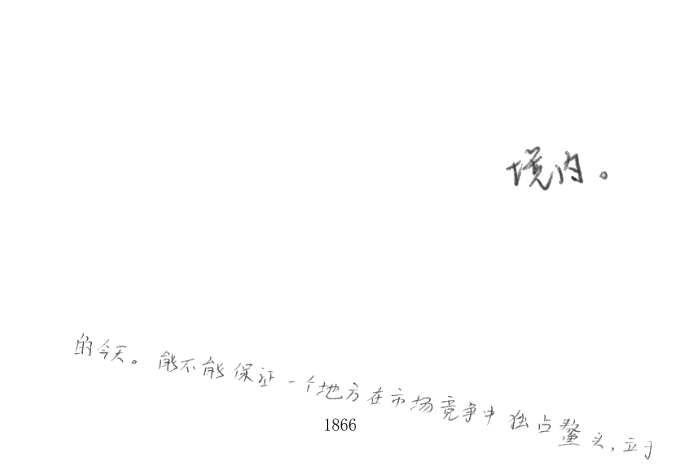 境内。
的今天。能不能保证一个地方在市场竞争中独占鳌头,立于
1866